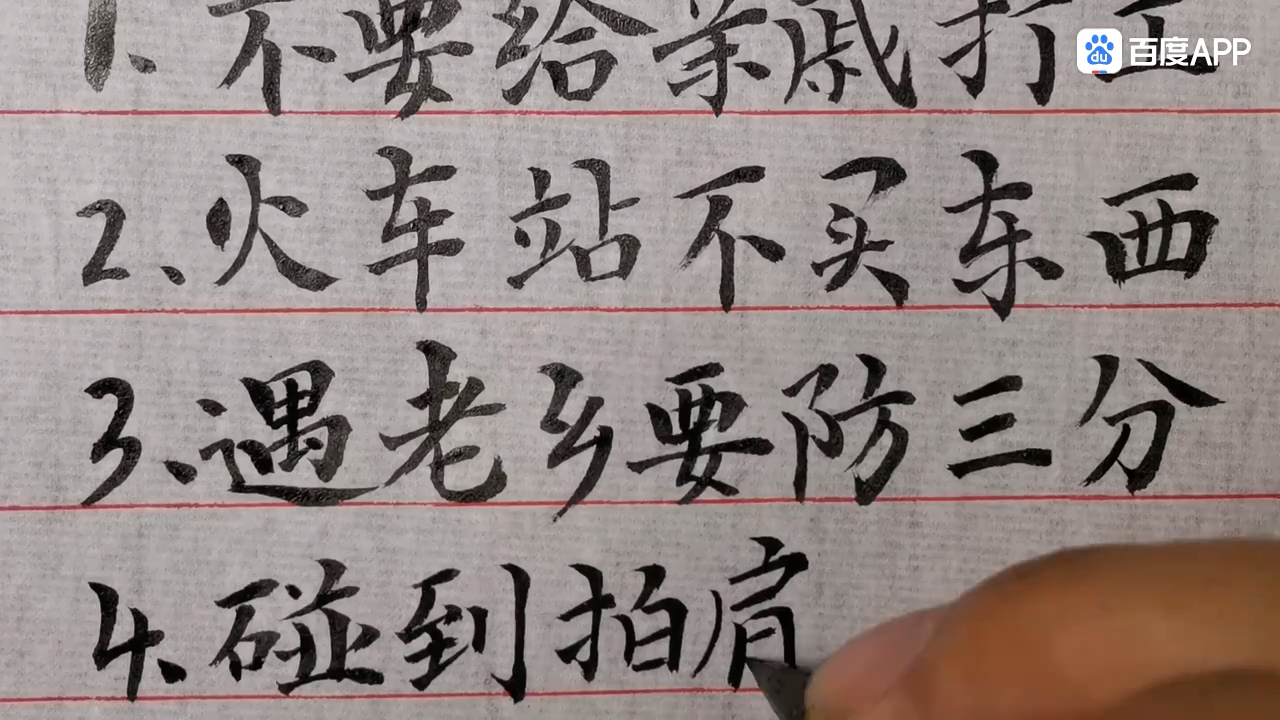 1、不要给亲戚打工
百度APP
2、火车站不买东西
3、遇老乡要防三分
4、碰到拍肩